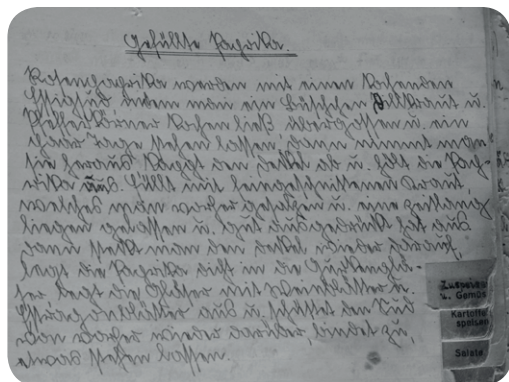 Gefüllte Paprika.
Rosenpaprika werden mit einem kochenden
Essigsud, in dem man ein bisschen Dillkraut u.
Pfefferkörner kochen ließ übergossen u. ein
paar Tage stehen lassen, dann nimmt man
sie heraus kappt den Deckel ab u. höhlt die Pap-
rika aus. Füllt mit feingeschnittenem Kraut,
welches man vorher gesalzen u. eine Zeitlang
liegen gelassen u. gut ausgedrückt hat aus
dann steckt man den Deckel wieder darauf,
legt die Paprika dicht in die Gurkenglä-
ser legt die Gläser mit Weinblättern u.
aus u. schüttet den Sud
von vorher wieder darüber, bindet zu,
stehen lassen.
Zuspeisen
u. Gemüs
Kartoffel
speisen
Salate